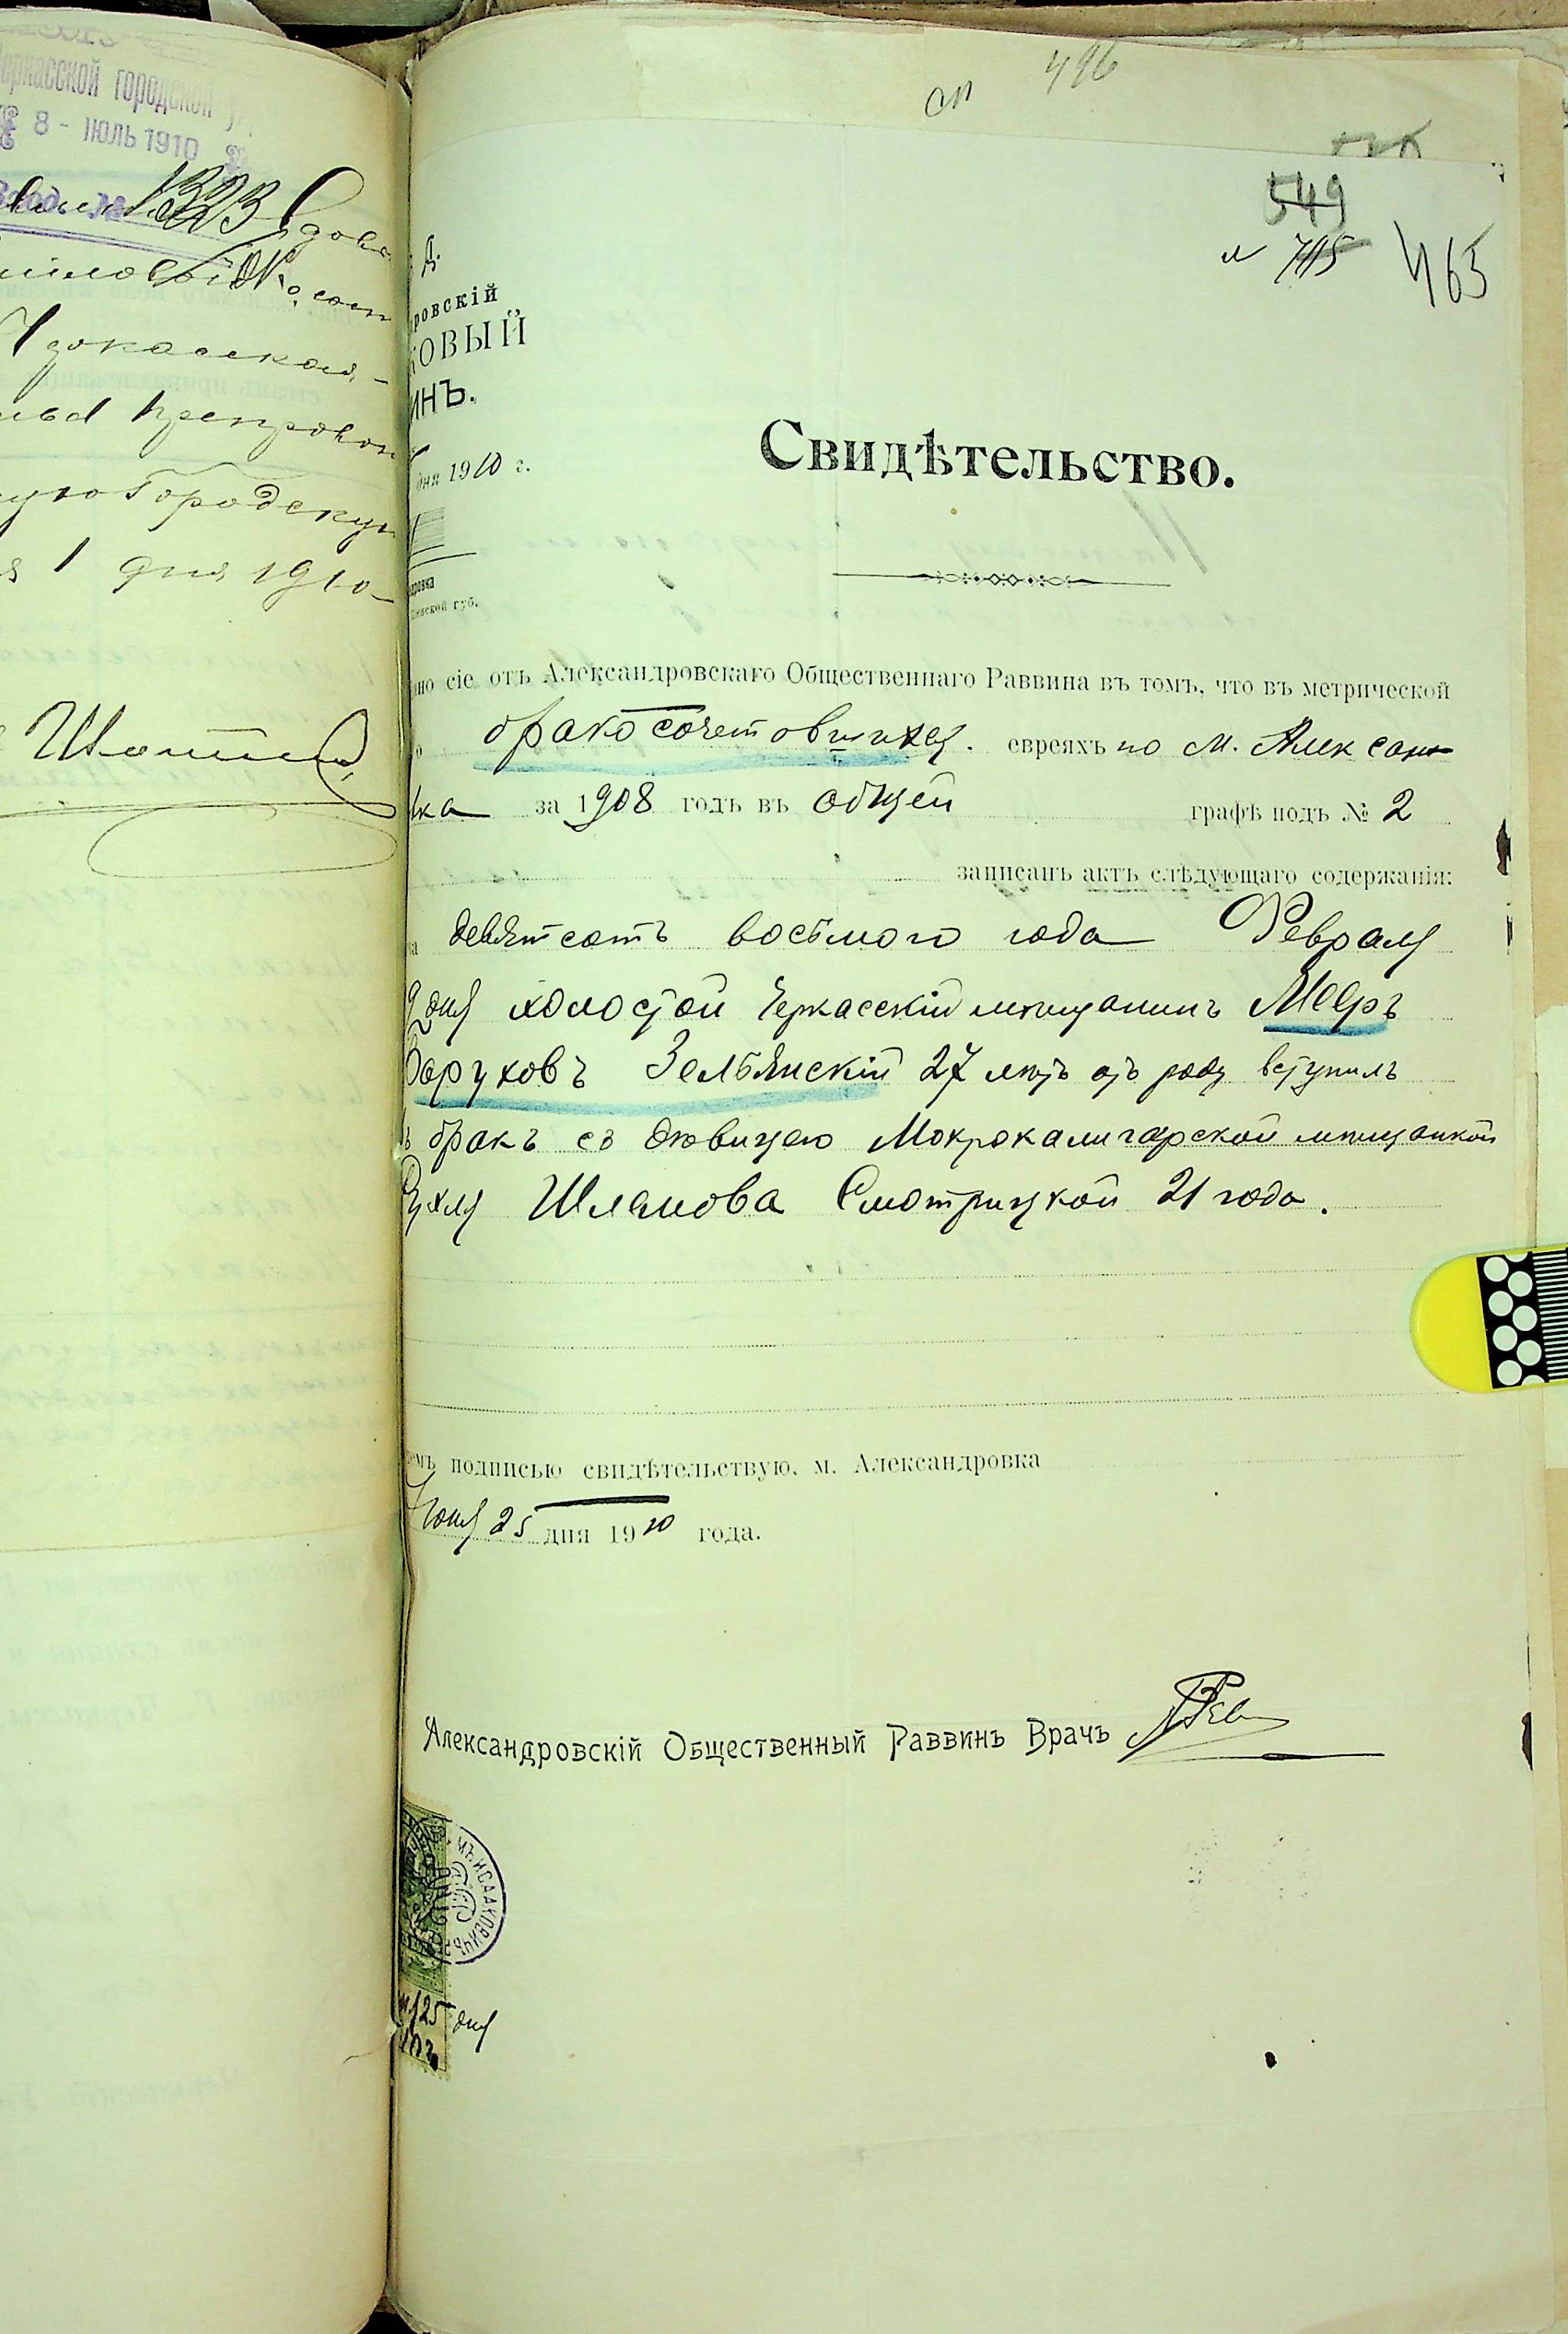 Черкасской городской
8 - ІЮЛЬ 1910
1323
Городскую
1 дня 1910
496
549
№ 715
465
Д.
ровскій
ОВЫЙ
ИНЪ.
дня 1910 г.
Свидѣтельство.
ровка
іевской губ.
но сіе отъ Александровскаго Общественнаго Раввина въ томъ, что въ метрической
о бракосочетовшихся. евреяхъ по м. Алексан
вка за 1908 годъ въ общей графѣ подъ № 2
записанъ актъ слѣдующаго содержанія:
девятсотъ восьмого года Февраля
дня холостой Черкасскій мѣщанинъ Мееръ
Боруховъ Зельянскій 27 лѣтъ отъ роду вступилъ
ъ бракъ съ дѣвицею Мокрокалигарской мѣщанкой
Рухля Шлемова Смотрицкой 21 года.
емъ подписью свидѣтельствую, м. Александровка
Іюня 25 дня 1910 года.
Александровскій Общественный Раввинъ Врачъ
ИСААКОВИЧЪ
25 дня